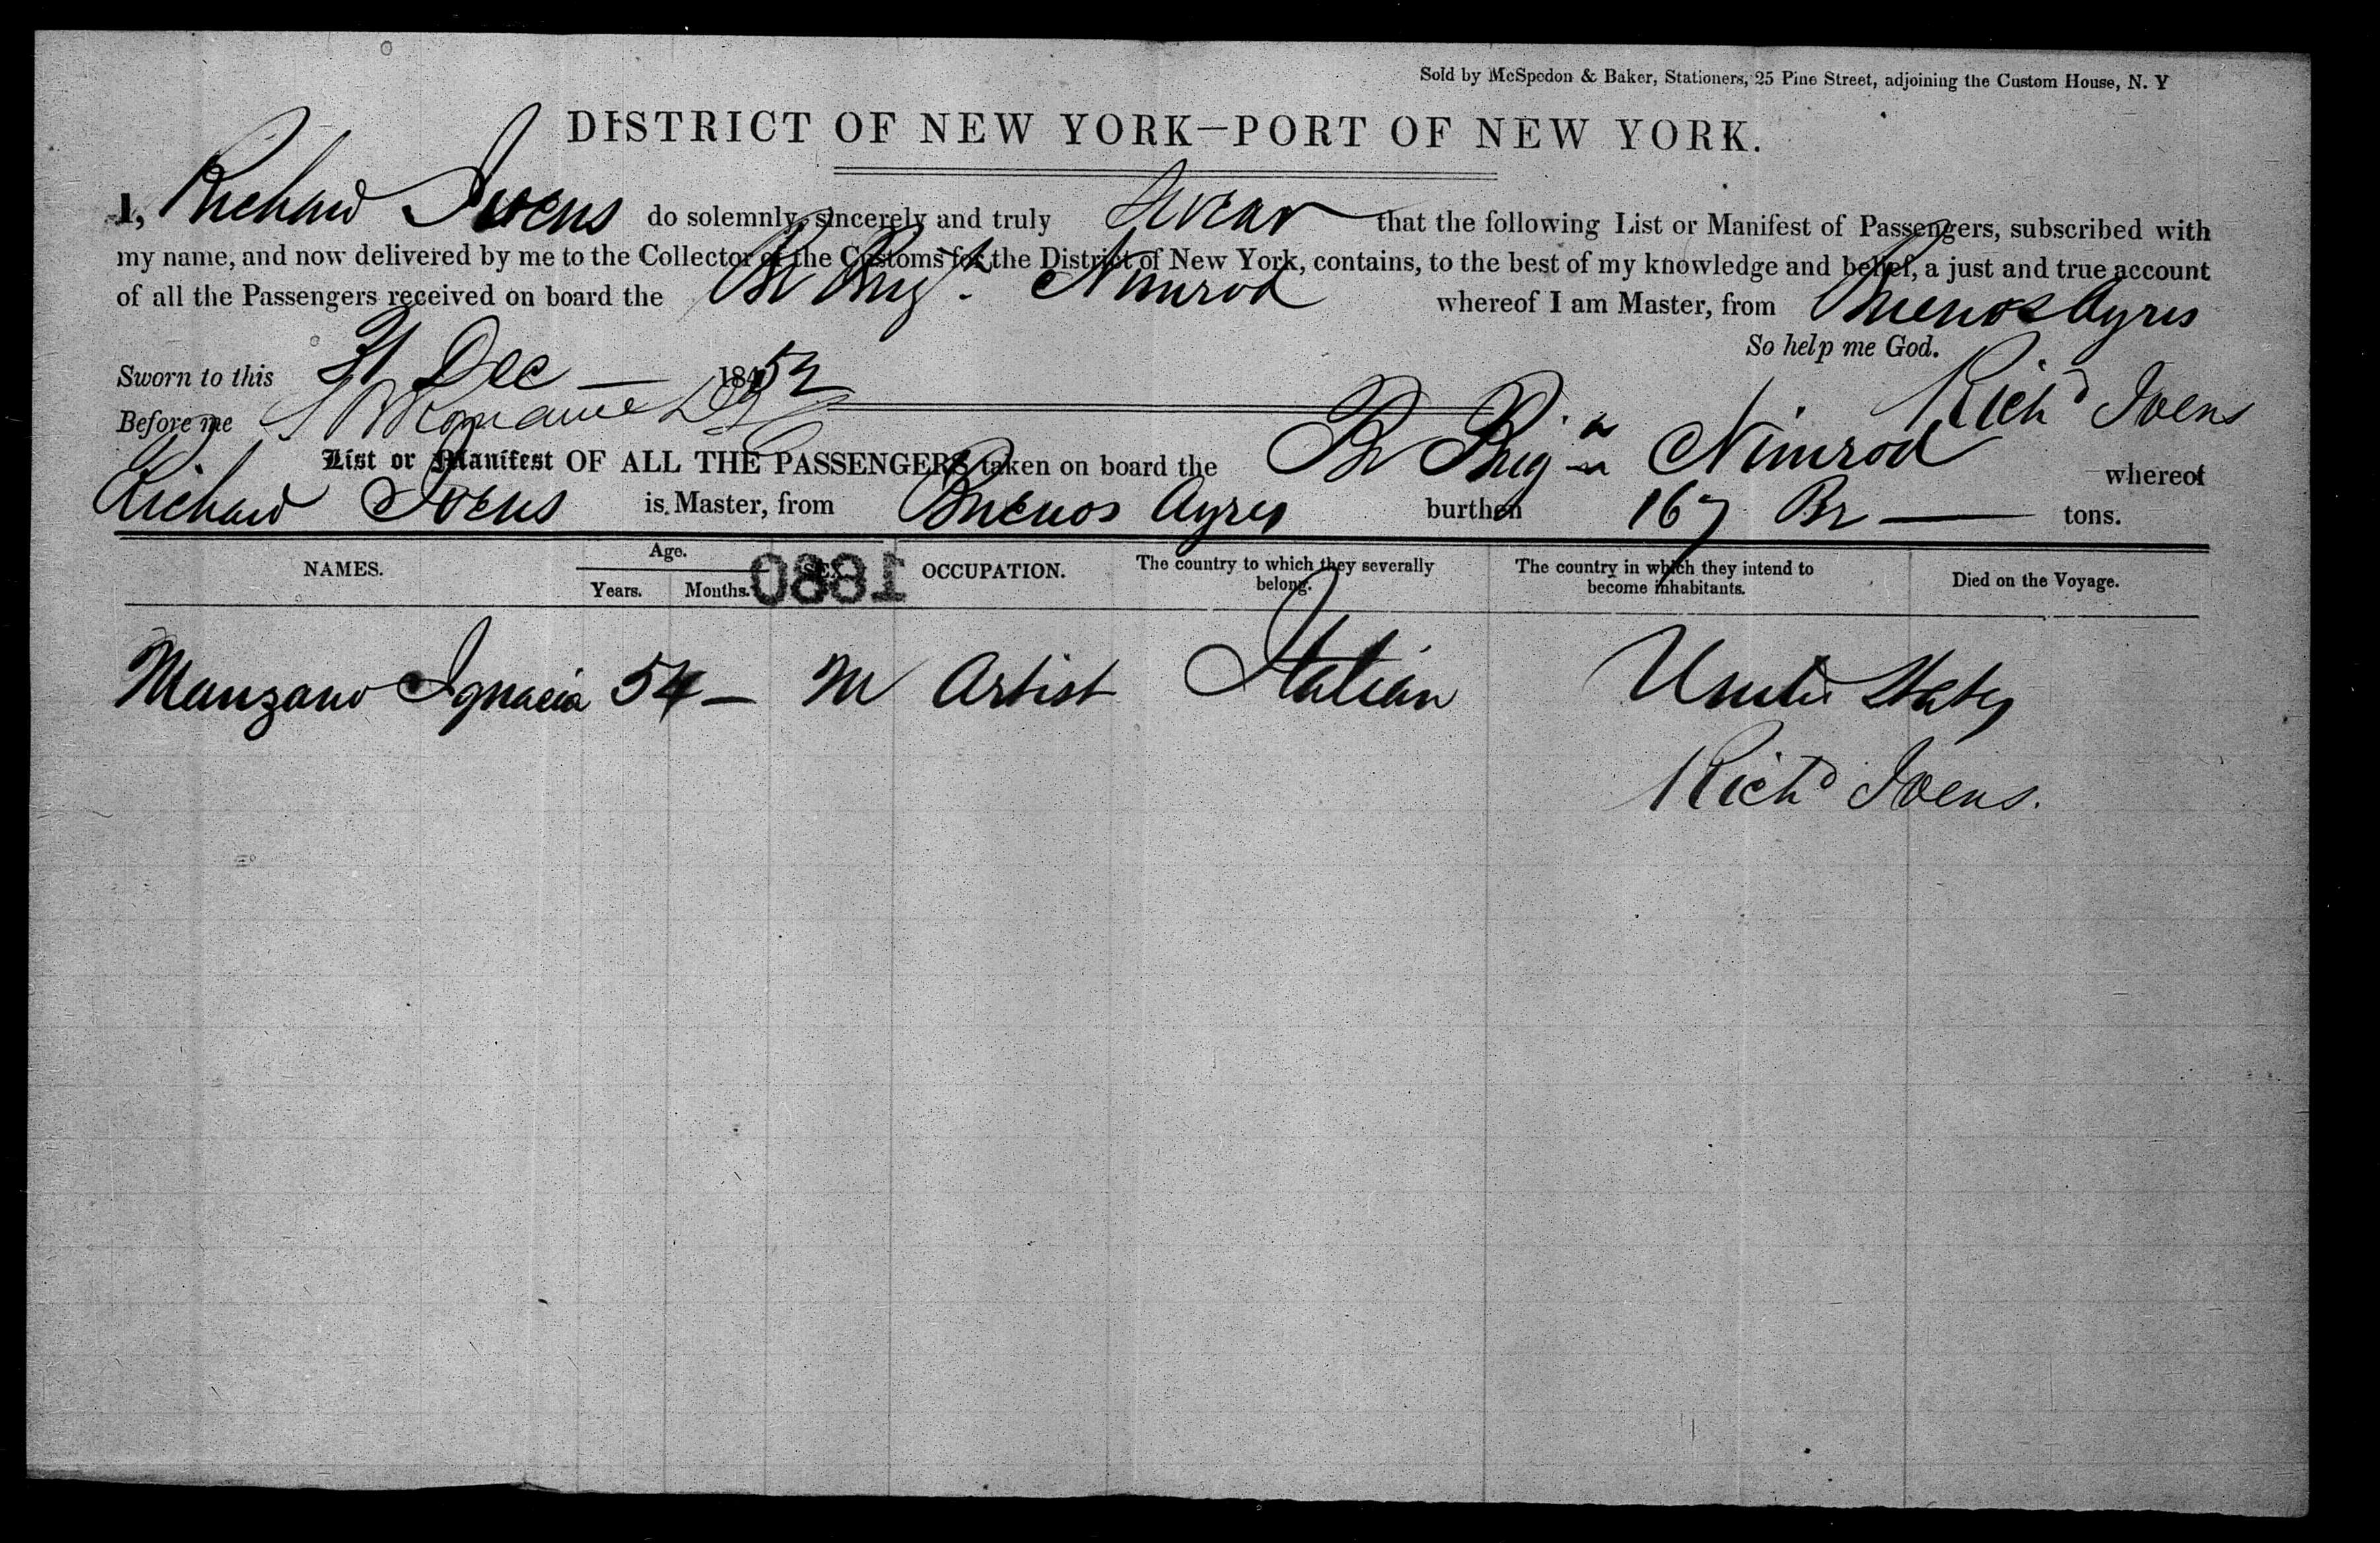 Sold by McSpedon & Baker, Stationers, 25 Pine Street, adjoining the Custom House, N. Y
DISTRICT OF NEW YORK—PORT OF NEW YORK.
I, Richard Ivens do solemnly, sincerely and truly swear that the following List or Manifest of Passengers, subscribed with
my name, and now delivered by me to the Collector of the Customs for the District of New York, contains, to the best of my knowledge and belief, a just and true account
of all the Passengers received on board the Br Brig Nimrod whereof I am Master, from Buenos Ayres
So help me God.
Sworn to this 31 Dec — 1852
Richd Ivens
Before me
List or Manifest OF ALL THE PASSENGERS taken on board the Br Brig Nimrod whereof
Richard Ivens is Master, from Buenos Ayres burthen 167 Br — tons.
NAMES. Age. Years. Months. SEX OCCUPATION. The country to which they severally belong. The country in which they intend to become inhabitants. Died on the Voyage.
1880
Manzano Ignacia 54 — M Artist Italian United States
Richd Ivens.